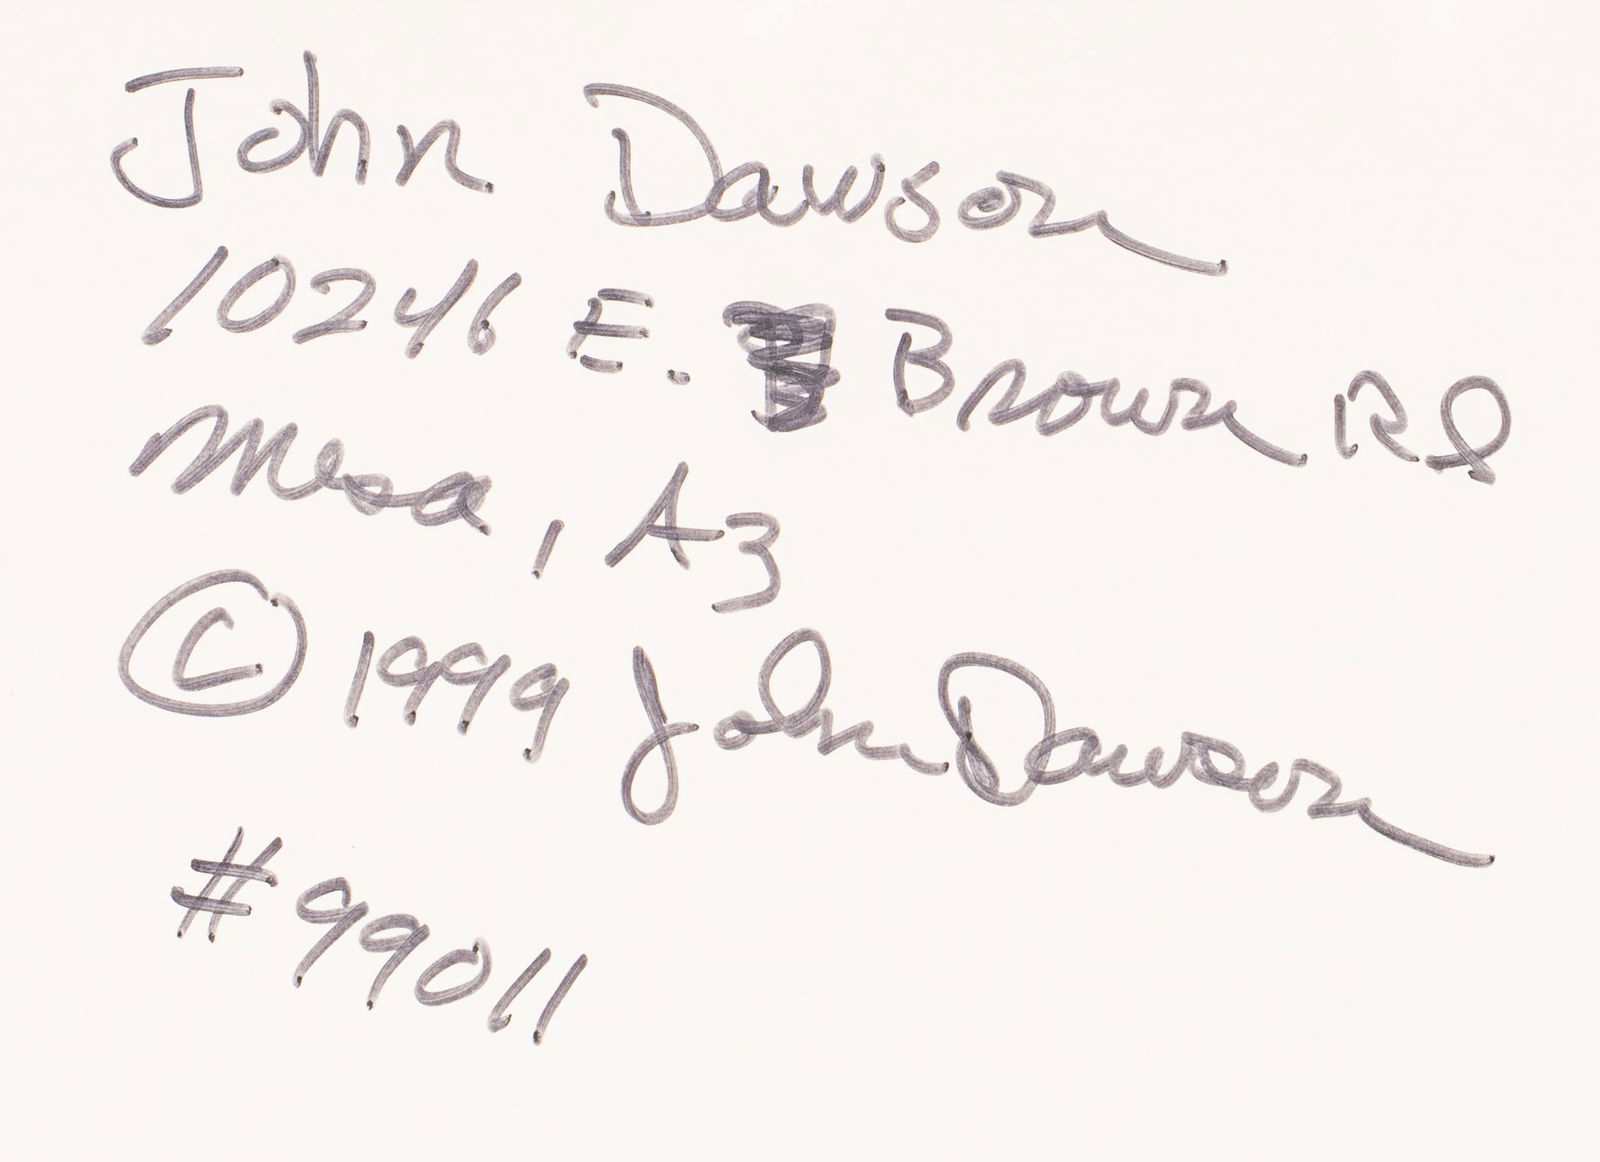 John Dawson
10246 E. Brown Rd
Mesa, AZ
© 1999 John Dawson
#99011